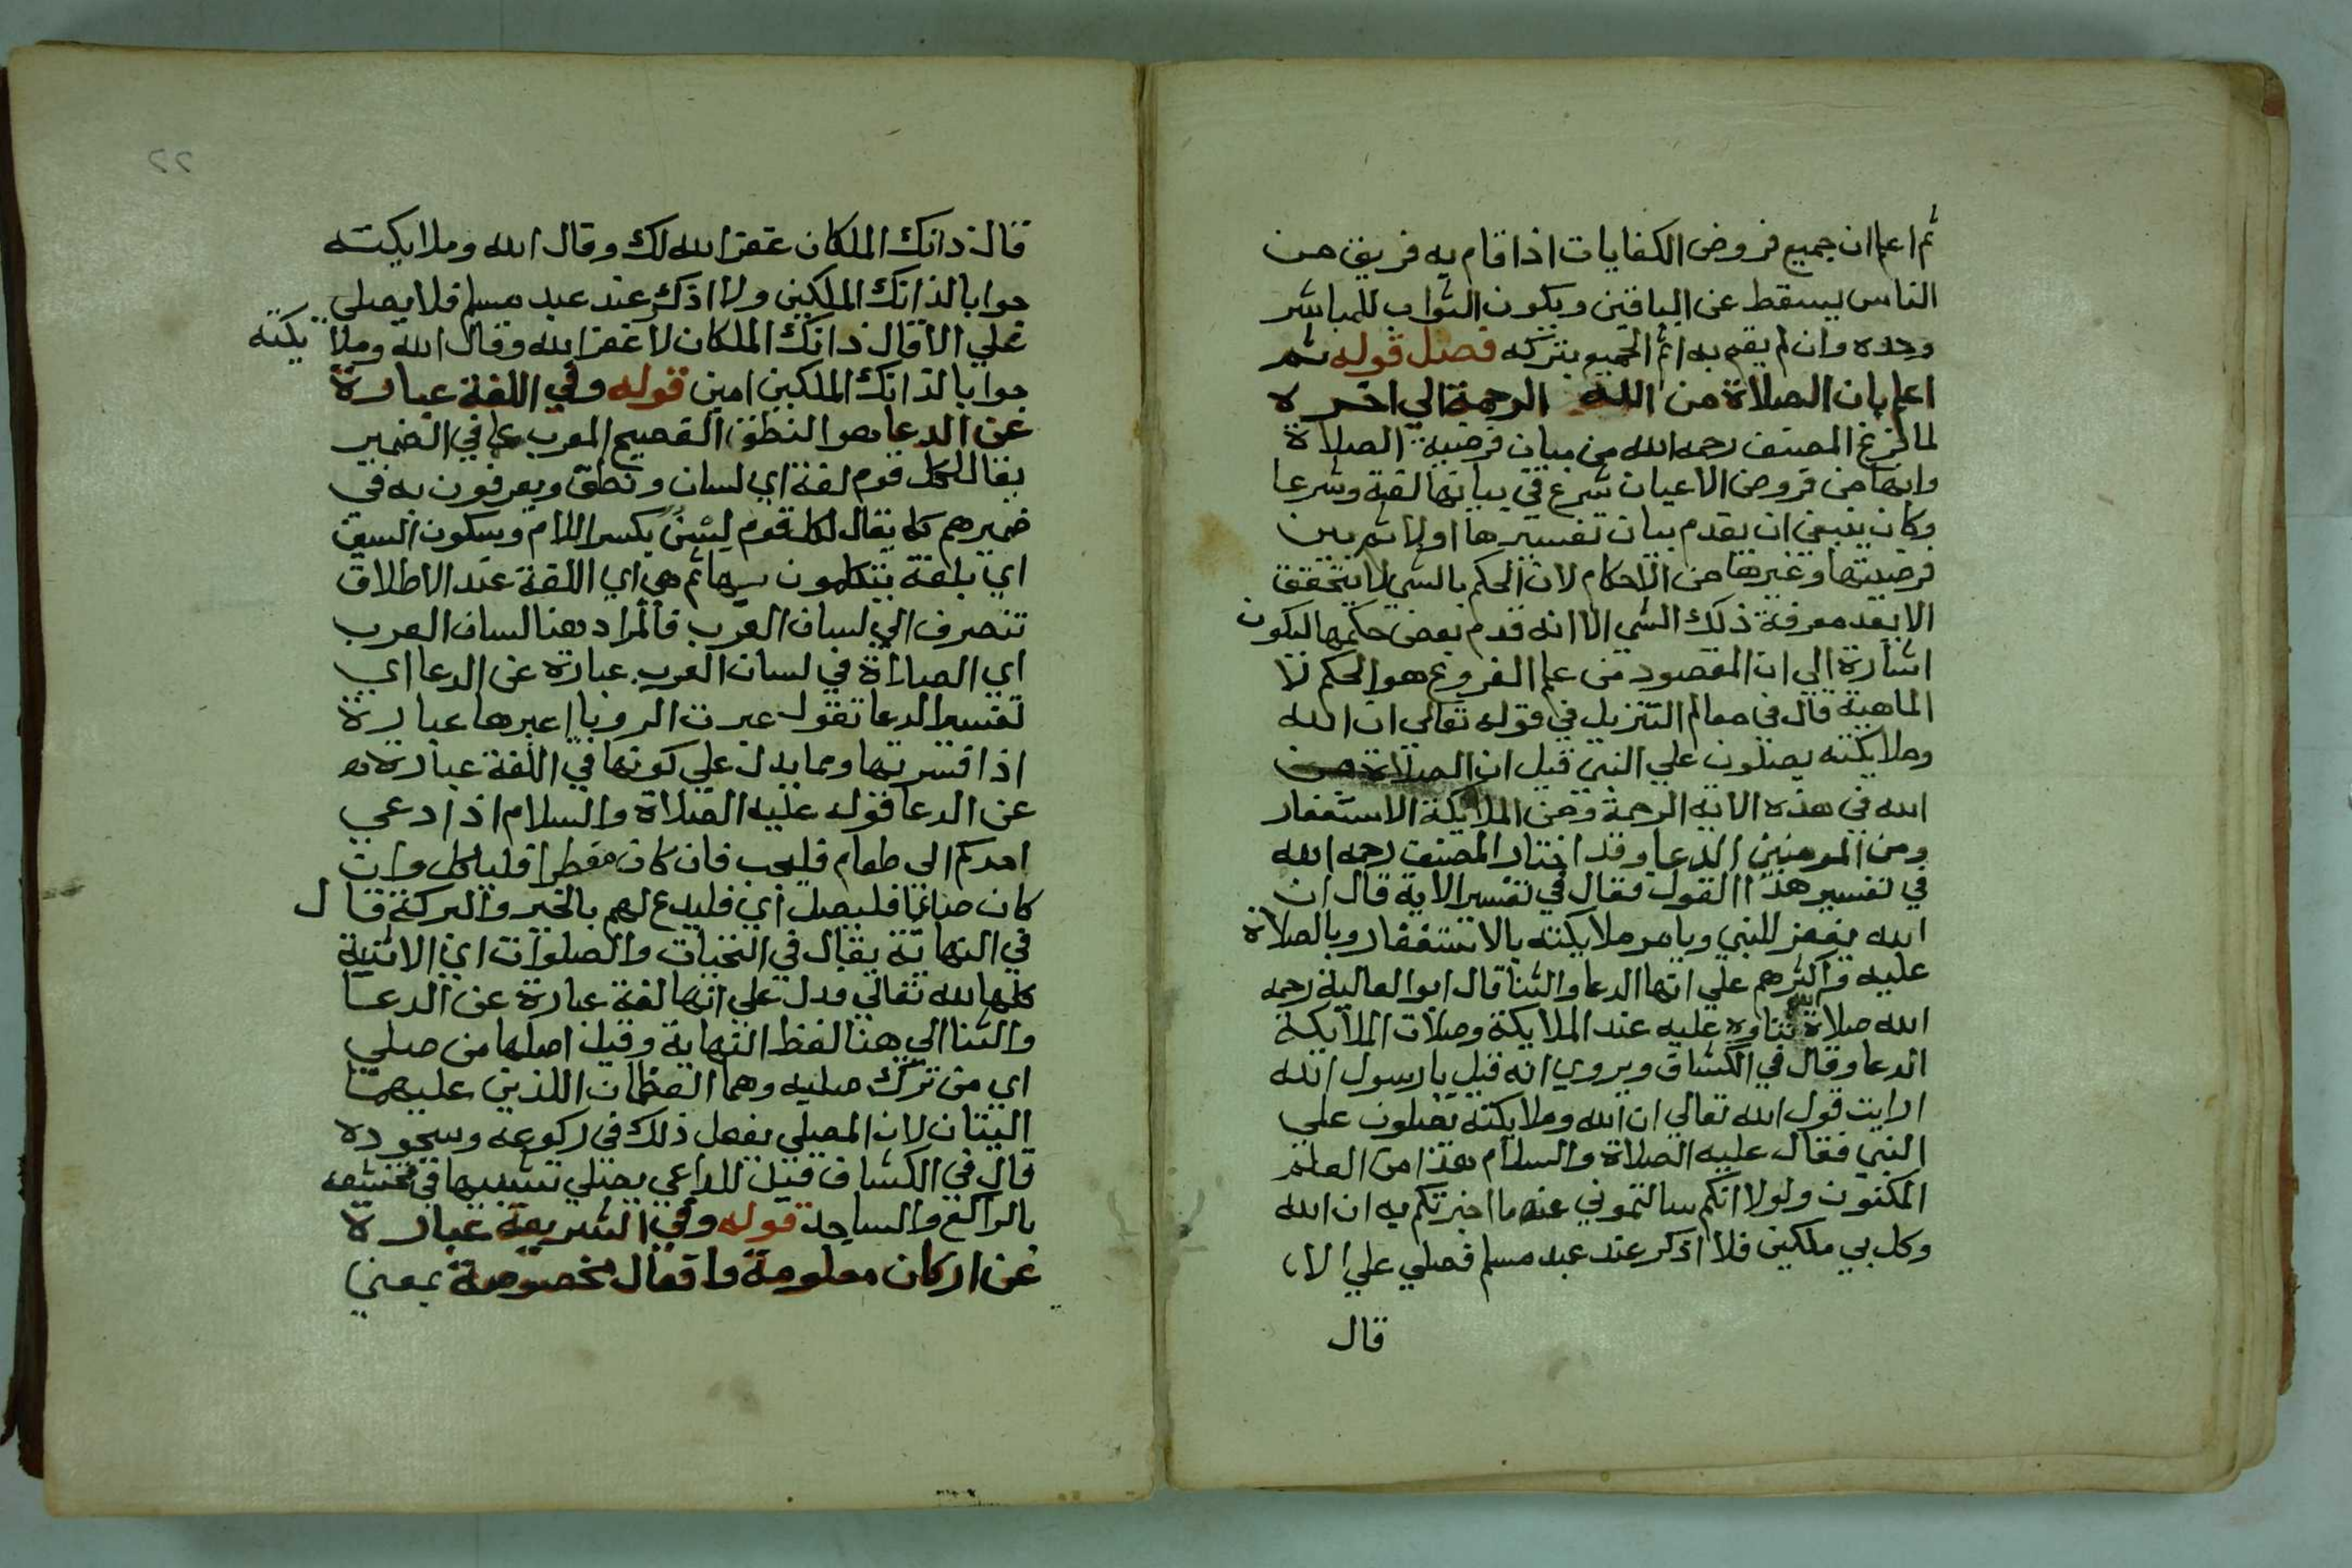 ثم اعلم ان جميع فروض الكفايات اذا قام به فريق من
الناس يسقط عن الباقين ويكون الثواب للمباشر
وحده وان لم يقم به اثم الجميع بتركه فصل قوله ثم
اعلم بان الصلاة من الله الرحمة الي اخره
لما فرغ المصنف رحمه الله من بيان فرضية الصلاة
وانها من فروض الاعيان شرع في بيانها لغة وشرعا
وكان ينبغي ان يقدم بيان تفسيرها اولا ثم يبين
فرضيتها وغيرها من الاحكام لان الحكم بالشي لا يتحقق
الا بعد معرفة ذلك الشي الا انه قدم بعض حكمها ليكون
اشارة الي ان المقصود من علم الفروع هو الحكم لا
الماهية قال في معالم التنزيل في قوله تعالي ان الله
وملايكته يصلون علي النبي قيل ان الصلاة من
الله في هذه الاية الرحمة ومن الملايكة الاستغفار
ومن المومنين الدعا وقد اختار المصنف رحمه الله
في تفسير هذا القول فقال في تفسير الاية قال ان
الله يغفر للنبي ويامر ملايكته بالاستغفار وبالصلاة
عليه واكثرهم علي انها الدعا والثنا قال ابو العالية رحمه
الله صلاة ثناوه عليه عند الملايكة وصلات الملايكة
الدعا وقال في الكشاف ويروي انه قيل يا رسول الله
ارايت قول الله تعالي ان الله وملايكته يصلون علي
النبي فقال عليه الصلاة والسلام هذا من العلم
المكنون ولولا انكم سالتموني عنه ما اخبرتكم به ان الله
وكل بي ملكين فلا اذكر عند عبد مسلم فصلي علي الا
قال
22
قال ذانك الملكان غفر الله لك وقال الله وملايكته
جوابا لذانك الملكين ولا اذكر عند عبد مسلم فلا يصلي
علي الا قال ذانك الملكان لا غفر الله وقال الله وملايكته
جوابا لذانك الملكين امين قوله وفي اللغة عبارة
عن الدعا هو النطق الفصيح المعرب عما في الضمير
يقال لكل قوم لغة اي لسان ونطق ويعرفون به في
ضميرهم كما يقال لكل قوم لِسْنٌ بكسر اللام وسكون السين
اي بلغة يتكلمون بها ثم هي اي اللغة عند الاطلاق
تنصرف الي لسان العرب فالمراد هنا لسان العرب
اي الصلاة في لسان العرب عبارة عن الدعا اي
تفسير الدعا تقول عبرت الرويا اعبرها عبارة
اذا فسرتها ومما يدل علي كونها في اللغة عبارة
عن الدعا قوله عليه الصلاة والسلام اذا دعي
احدكم الي طعام فليجب فان كان مفطرا فلياكل وان
كان صايما فليصل اي فليدع لهم بالخير والبركة قال
في النهاية يقال في التحيات والصلوات اي الاثنية
كلها لله تعالي فدل علي انها لغة عبارة عن الدعا
والثنا الي هنا لفظ النهاية وقيل اصلها من صلي
اي من ترك صليه وهما العظمان اللذين عليهما
اليتان لان المصلي يفعل ذلك في ركوعه وسجوده
قال في الكشاف قيل للداعي يصلي تشبيها في تخشعه
بالراكع والساجد قوله وفي الشريعة عبارة
عن اركان معلومة وافعال مخصوصة بمعني